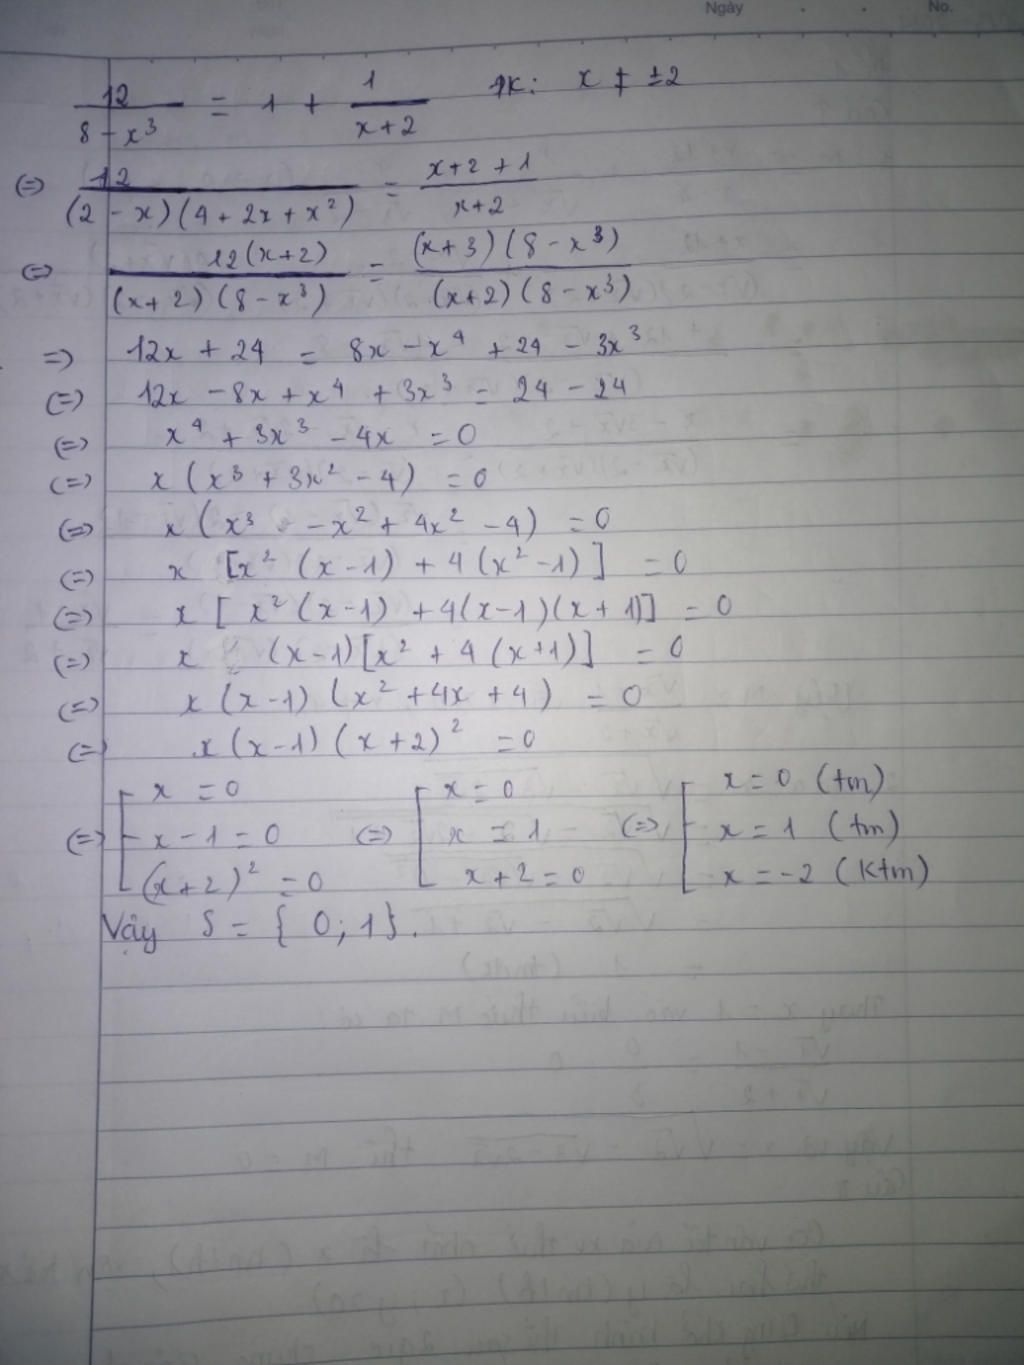 Ngày . . No.
12/(8 - x³) = 1 + 1/(x+2) ĐK: x ≠ ±2
(=) 12/((2 - x)(4 + 2x + x²)) = (x+2+1)/(x+2)
(=) 12(x+2)/((x+2)(8-x³)) = (x+3)(8-x³)/((x+2)(8-x³))
=) 12x + 24 = 8x - x⁴ + 24 - 3x³
(=) 12x - 8x + x⁴ + 3x³ = 24 - 24
(=) x⁴ + 3x³ - 4x = 0
(=) x (x³ + 3x² - 4) = 0
(=) x (x³ - x² + 4x² - 4) = 0
(=) x [x² (x-1) + 4 (x² - 1)] = 0
(=) x [x² (x-1) + 4(x-1)(x+1)] = 0
(=) x (x-1)[x² + 4 (x+1)] = 0
(=) x (x-1) (x² + 4x + 4) = 0
(=) x (x-1) (x+2)² = 0
(=) [ x = 0 (=) [ x = 0 (=) [ x = 0 (tm)
x - 1 = 0 x = 1 x = 1 (tm)
(x+2)² = 0 x+2 = 0 x = -2 (Ktm)
Vậy S = { 0; 1}.